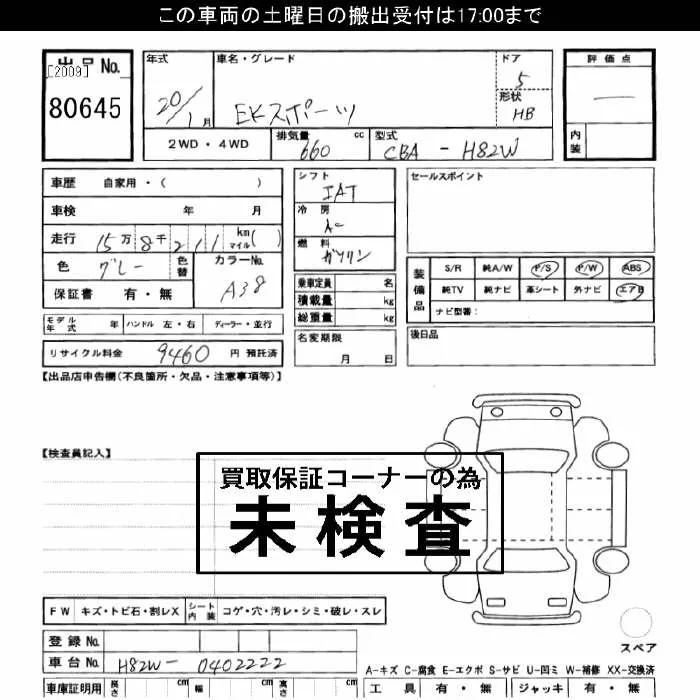 この車両の土曜日の搬出受付は17:00まで
出品No.
[2009]
80645
年式 20/1月
車名・グレード EKスポーツ
ドア 5
形状 HB
2WD・4WD
排気量 660 cc
型式 CBA - H82W
評価点 —
内装
車歴 自家用・( )
車検 年 月
走行 15万8千211 km マイル( )
色 グレー 色替
カラーNo. A38
保証書 有・無
シフト IAT
冷房 AC
燃料 ガソリン
乗車定員 名
積載量 kg
総重量 kg
セールスポイント
装備品
S/R 純A/W P/S P/W ABS
純TV 純ナビ 革シート 外ナビ エアB
ナビ型番:
モデル年式 年 ハンドル 左・右 ディーラー・並行
リサイクル料金 9460 円 預託済
名変期限 月 日
後日品
【出品店申告欄(不良箇所・欠品・注意事項等)】
【検査員記入】
買取保証コーナーの為
未検査
FW キズ・トビ石・割レX シート内装 コゲ・穴・汚レ・シミ・破レ・スレ
登録No.
車台No. H82W- 0402222
車庫証明用 長さ cm 幅 cm 高さ cm
スペア
A-キズ C-腐食 E-エクボ S-サビ U-凹ミ W-補修 XX-交換済
工具 有・無 ジャッキ 有・無